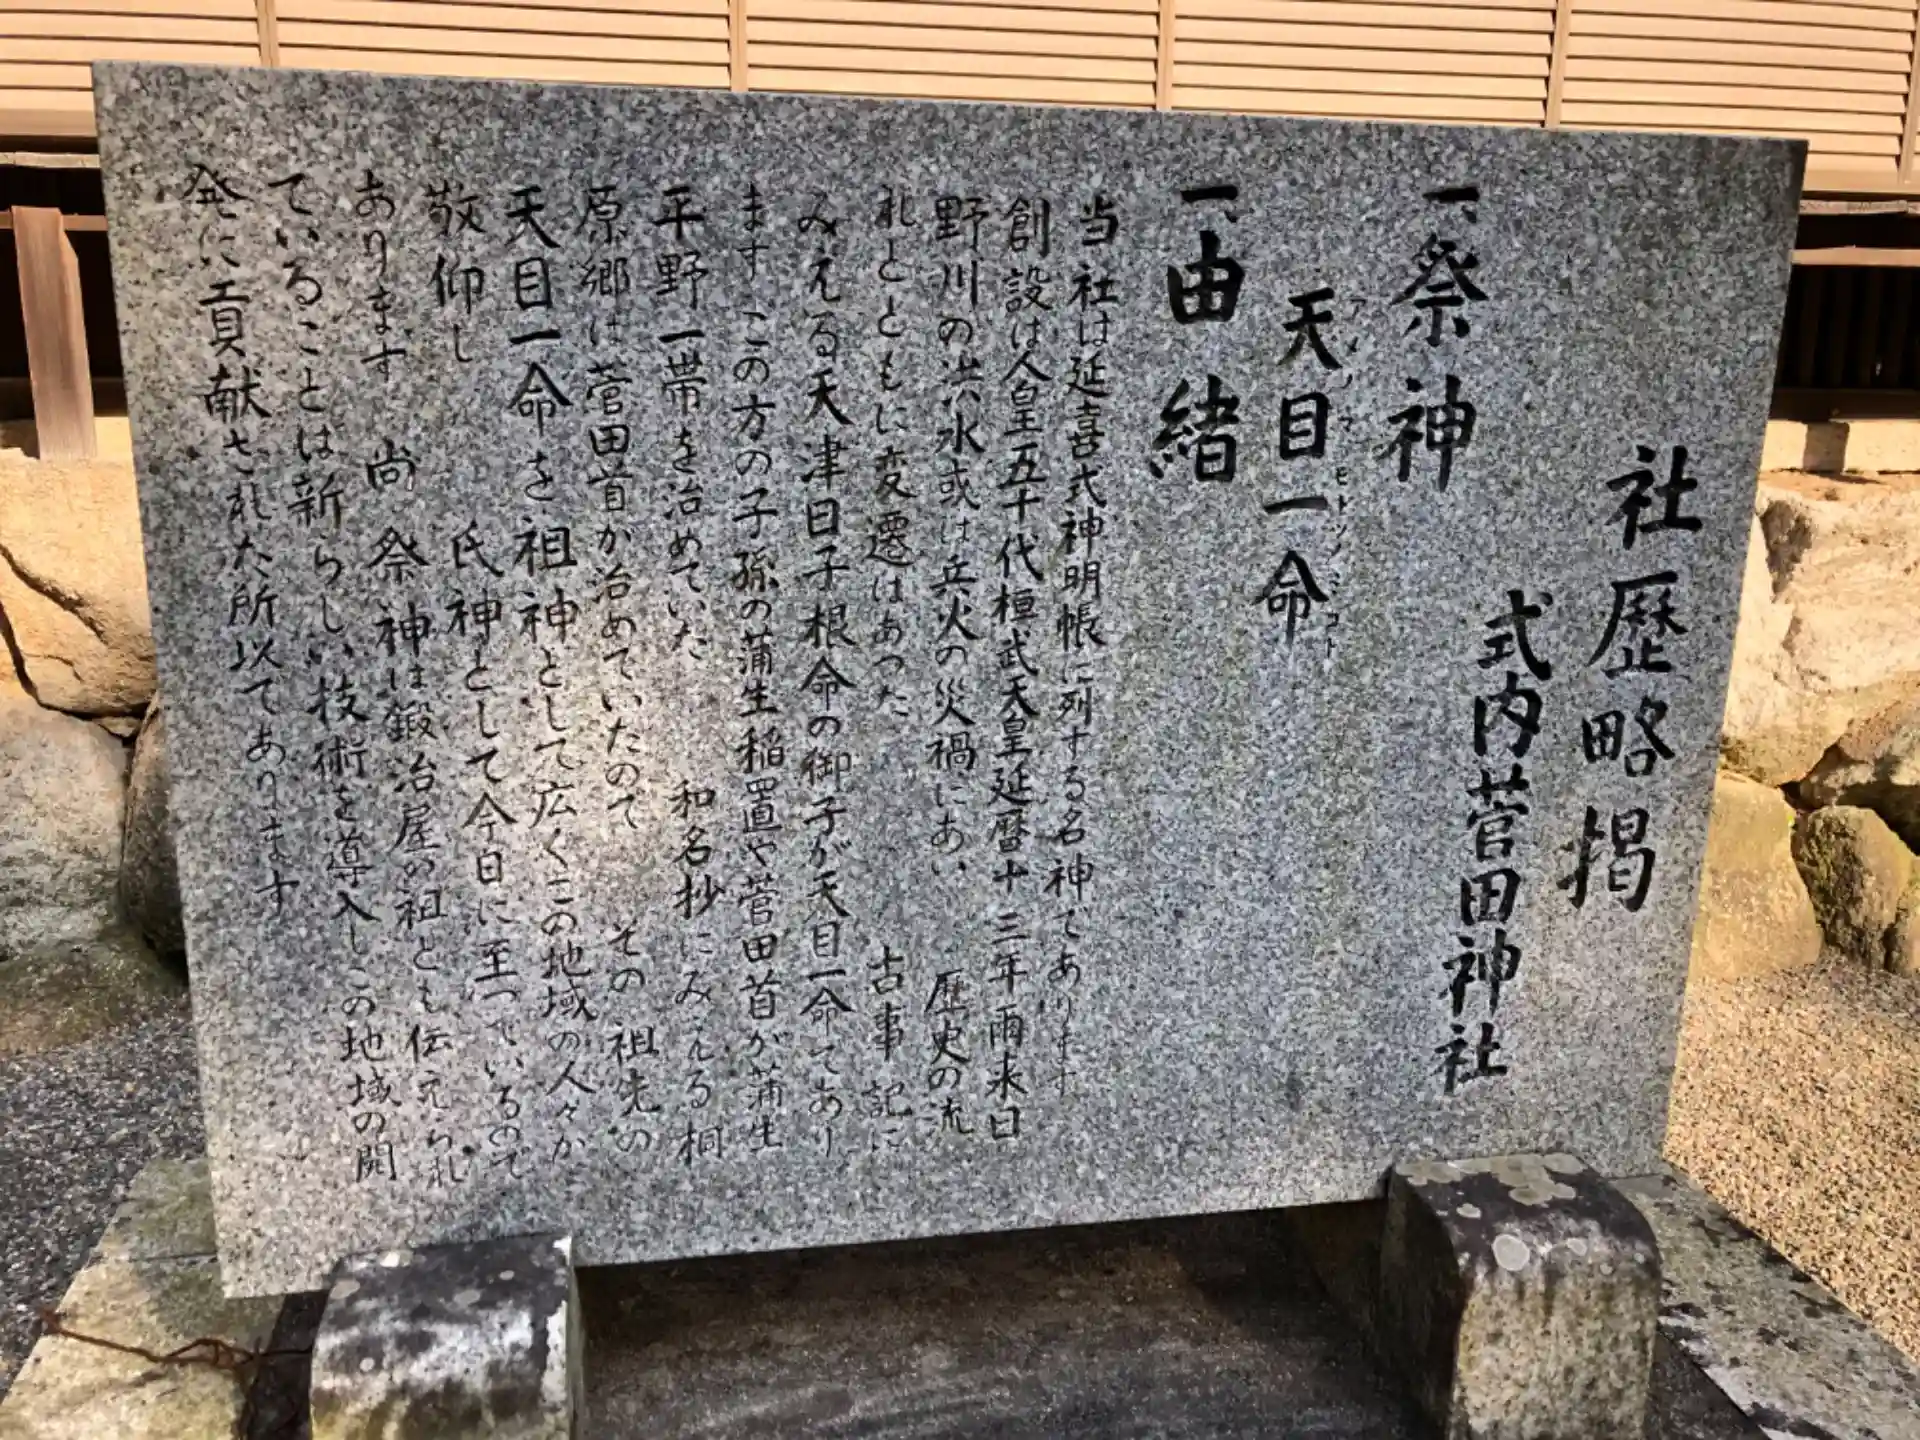 社歴略掲
式内菅田神社
一、祭神
アメノマヒトツノミコト
天目一命
一、由緒
当社は延喜式神明帳に列する名神であります
創設は人皇五十代桓武天皇延暦十三年雨水日
野川の洪水或は兵火の災禍にあい 歴史の流
れとともに変遷はあった 古事記に
みえる天津日子根命の御子が天目一命であり
ます この方の子孫の蒲生稲置や菅田首が蒲生
平野一帯を治めていた 和名抄にみえる桐
原郷は菅田首が治めていたので その祖先の
天目一命を祖神として広くこの地域の人々か
敬仰し 氏神として今日に至っているので
あります 尚 祭神は鍛冶屋の祖とも伝えられ
ていることは新らしい技術を導入しこの地域の開
発に貢献された所以であります